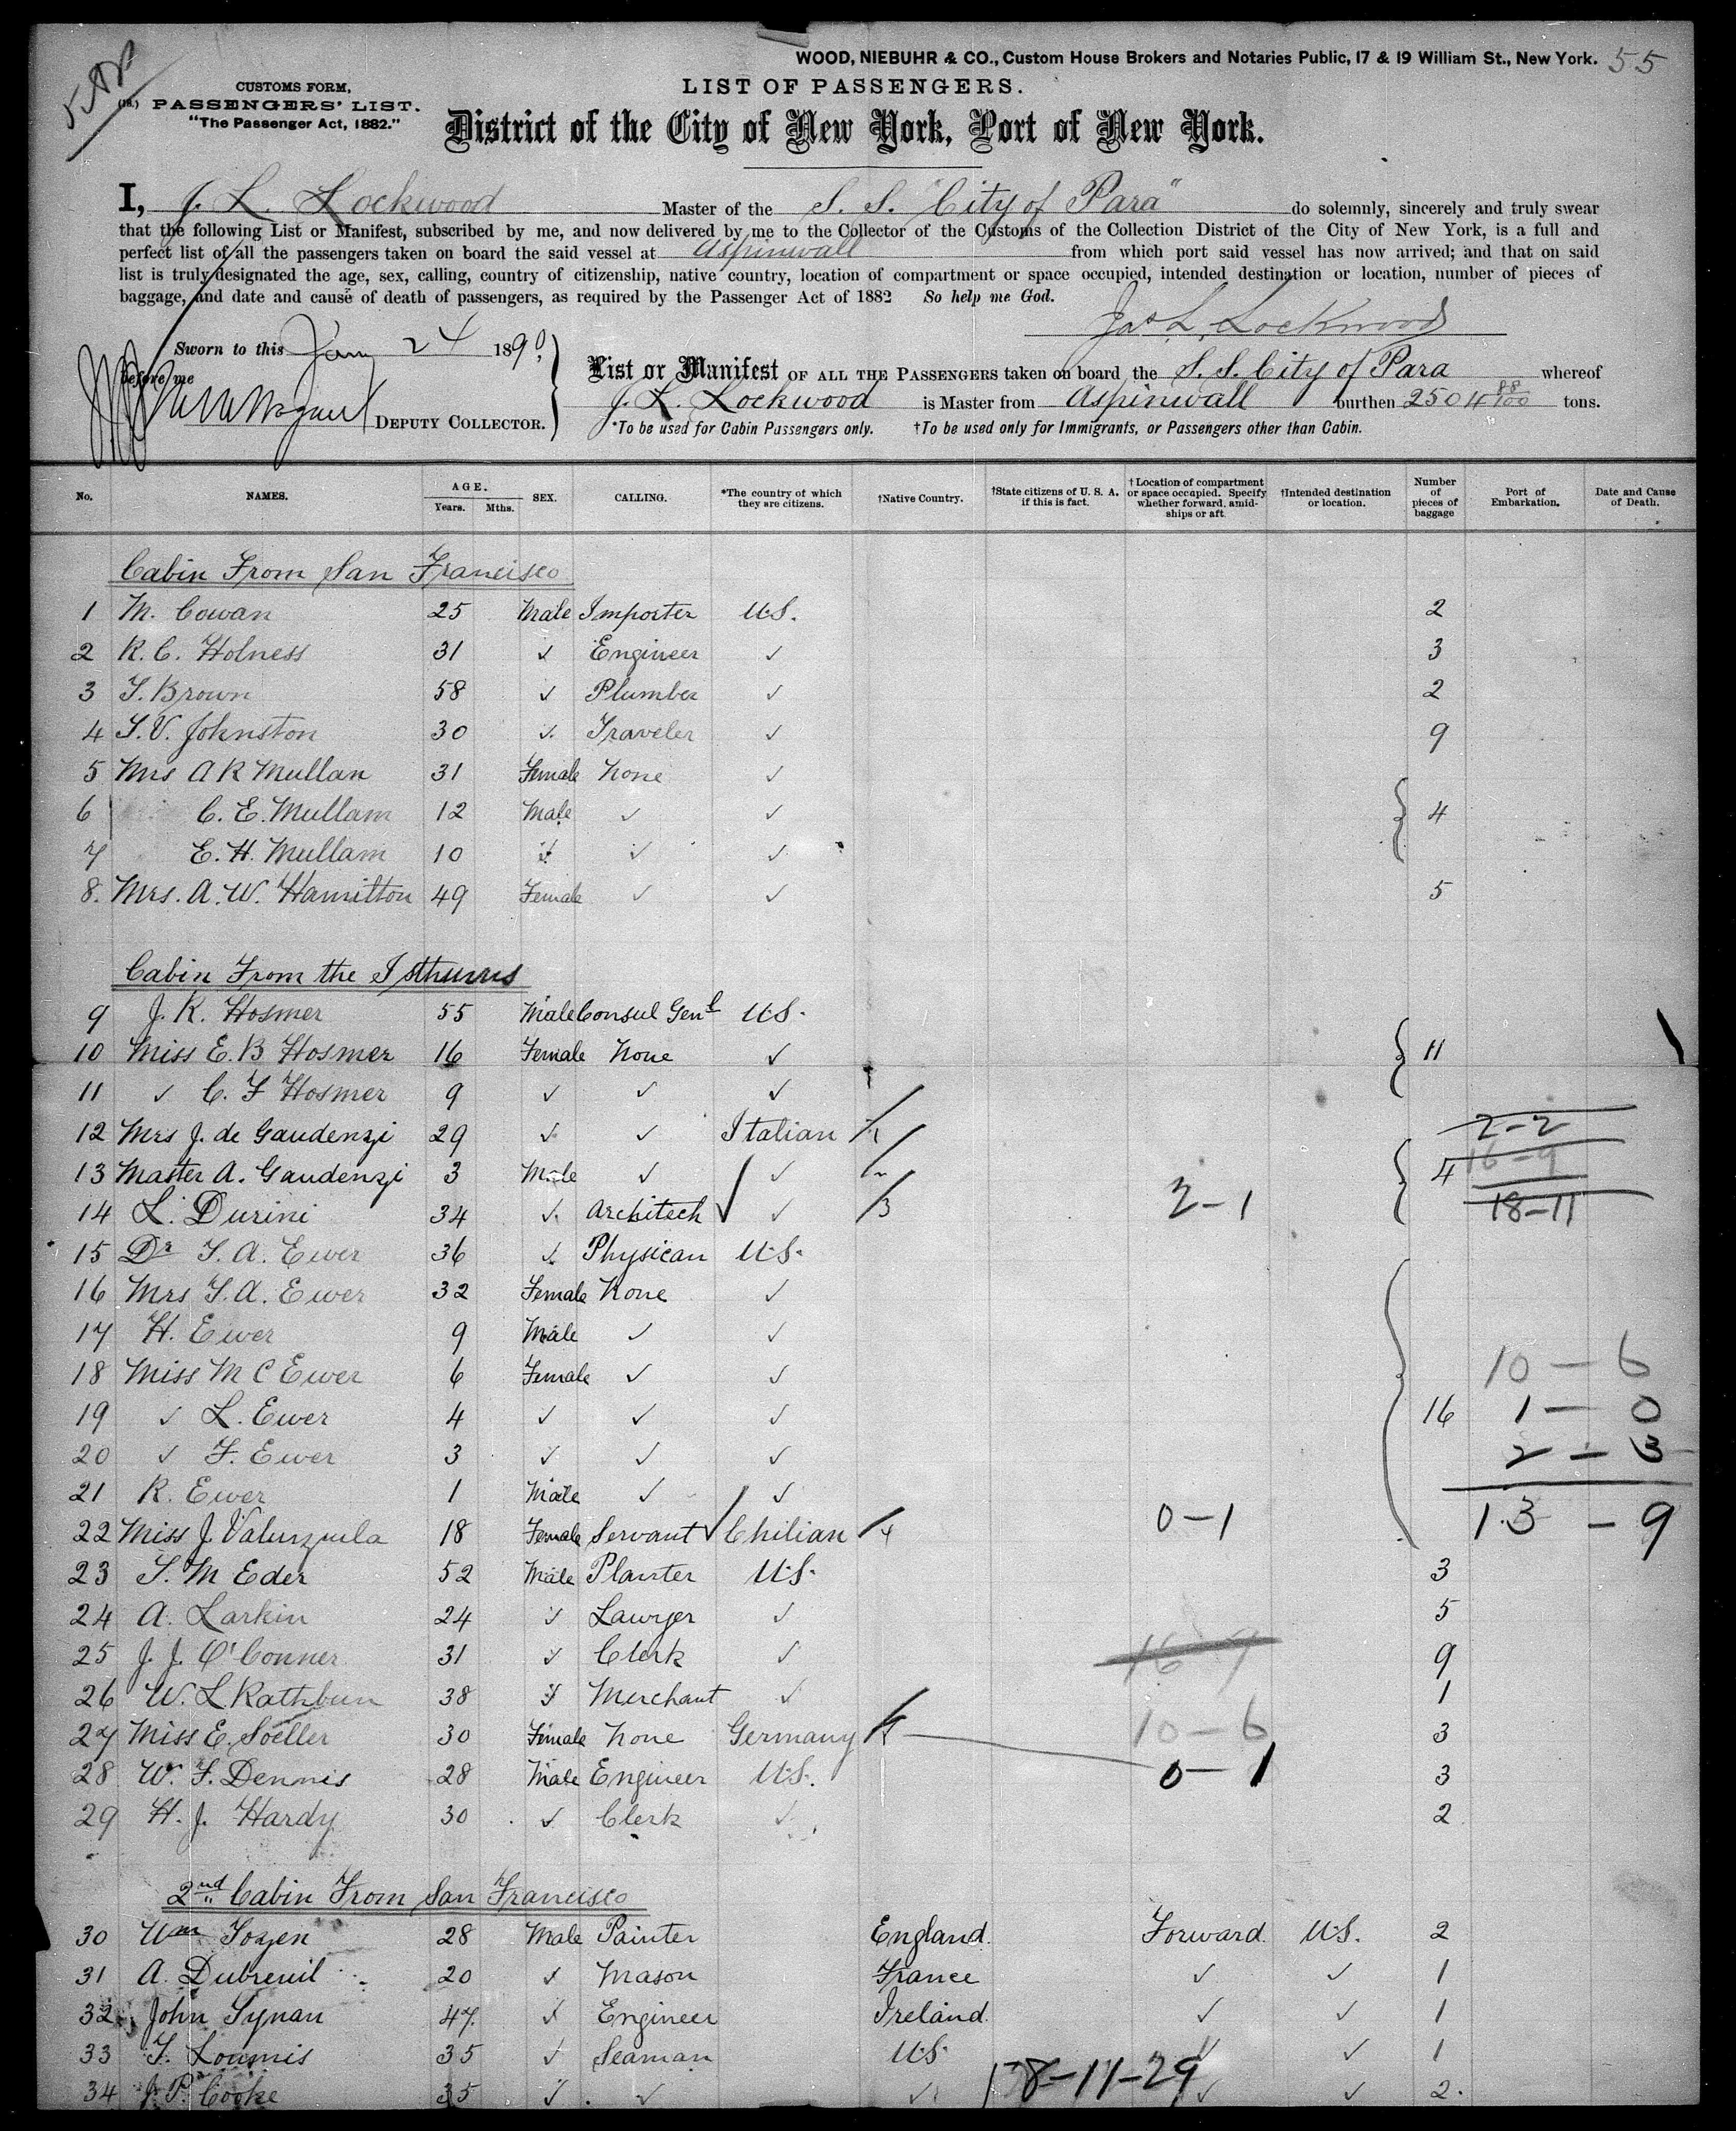 WOOD, NIEBUHR & CO., Custom House Brokers and Notaries Public, 17 & 19 William St., New York. 55
CUSTOMS FORM,
PASSENGERS' LIST.
"The Passenger Act, 1882."
LIST OF PASSENGERS.
District of the City of New York, Port of New York.
I, J. L. Lockwood Master of the S. S. "City of Para" do solemnly, sincerely and truly swear
that the following List or Manifest, subscribed by me, and now delivered by me to the Collector of the Customs of the Collection District of the City of New York, is a full and
perfect list of all the passengers taken on board the said vessel at Aspinwall from which port said vessel has now arrived; and that on said
list is truly designated the age, sex, calling, country of citizenship, native country, location of compartment or space occupied, intended destination or location, number of pieces of
baggage, and date and cause of death of passengers, as required by the Passenger Act of 1882 So help me God.
Jas L. Lockwood
Sworn to this Jany 24 1890
before me
DEPUTY COLLECTOR.
List or Manifest OF ALL THE PASSENGERS taken on board the S. S. City of Para whereof
J. L. Lockwood is Master from Aspinwall burthen 2504 88/100 tons.
*To be used for Cabin Passengers only. †To be used only for Immigrants, or Passengers other than Cabin.
No. NAMES. AGE. Years. Mths. SEX. CALLING. *The country of which they are citizens. †Native Country. †State citizens of U. S. A. if this is fact. †Location of compartment or space occupied. Specify whether forward, amidships or aft. †Intended destination or location. Number of pieces of baggage Port of Embarkation. Date and Cause of Death.
Cabin From San Francisco
1 M. Cowan 25 Male Importer U.S. 2
2 R. C. Holness 31 ✓ Engineer ✓ 3
3 T. Brown 58 ✓ Plumber ✓ 2
4 T. V. Johnston 30 ✓ Traveler ✓ 9
5 Mrs A R Mullan 31 Female None ✓
6 C. E. Mullam 12 Male ✓ ✓ 4
7 E. H. Mullam 10 ✓ ✓ ✓
8. Mrs. A. W. Hamilton 49 Female ✓ ✓ 5
Cabin From the Isthmus
9 J. R. Hosmer 55 Male Consul Genl U.S.
10 Miss E. B Hosmer 16 Female None ✓ 11
11 ✓ C. F Hosmer 9 ✓ ✓ ✓
12 Mrs J. de Gaudenzi 29 ✓ ✓ Italian 1 2-2
13 Master A. Gaudenzi 3 Male ✓ ✓ 2 4 16-9
14 L. Durini 34 ✓ Architech ✓ ✓ 3 2-1 18-11
15 Dr T. A. Ewer 36 ✓ Physican U.S.
16 Mrs T. A. Ewer 32 Female None ✓
17 H. Ewer 9 Male ✓ ✓
18 Miss M C Ewer 6 Female ✓ ✓ 10 - 6
19 ✓ L. Ewer 4 ✓ ✓ ✓ 16 1 - 0
20 ✓ F. Ewer 3 ✓ ✓ ✓ 2 - 3
21 R. Ewer 1 Male ✓ ✓
22 Miss J. Valunzuila 18 Female Servant ✓ Chilian 4 0-1 13 - 9
23 S. M Eder 52 Male Planter U.S. 3
24 A. Larkin 24 ✓ Lawyer ✓ 5
25 J. J. O'Conner 31 ✓ Clerk ✓ 16-7 9
26 W. L. Rathbun 38 ✓ Merchant ✓ 1
27 Miss E. Soeller 30 Female None Germany 10-6 3
28 W. F. Dennis 28 Male Engineer U.S. 0-1 3
29 H. J. Hardy 30 ✓ Clerk ✓ 2
2nd Cabin From San Francisco
30 Wm Tozen 28 Male Painter England. Forward. U.S. 2
31 A. Dubreuil 20 ✓ Mason France ✓ ✓ 1
32 John Synan 47 ✓ Engineer Ireland. ✓ ✓ 1
33 T. Loumis 35 ✓ Seaman U.S. ✓ ✓ 1
34 J. P. Cooke 35 ✓ ✓ ✓ 8-11-29 ✓ ✓ 2.